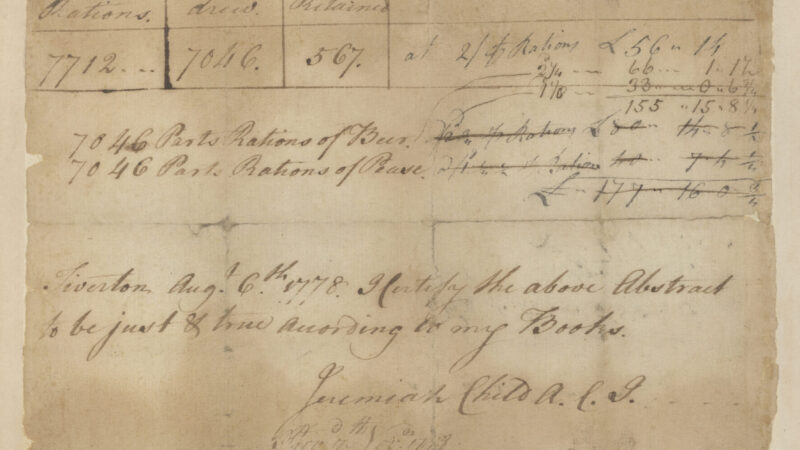 Rations. drew. Retained
7712 7046. 567. at 2/ p Rations £56 " 14
2¼ 66 1 " 1½
1⅛ 33 " 0 " 6¾
155 " 15 " 8¼
7046 Parts Rations of Beer. p Rations £80 " 14 " 8½
7046 Parts Rations of Pease. 40 " 7 " 4½
£ 177 " 16 " 0¾
Tiverton Augt. 6th. 1778. I Certify the above Abstract
to be just & true Acording to my Books.
Jeremiah Child A. C. I.